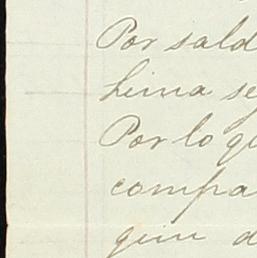 Por sald
hima se
Por lo qu
compa
quin d